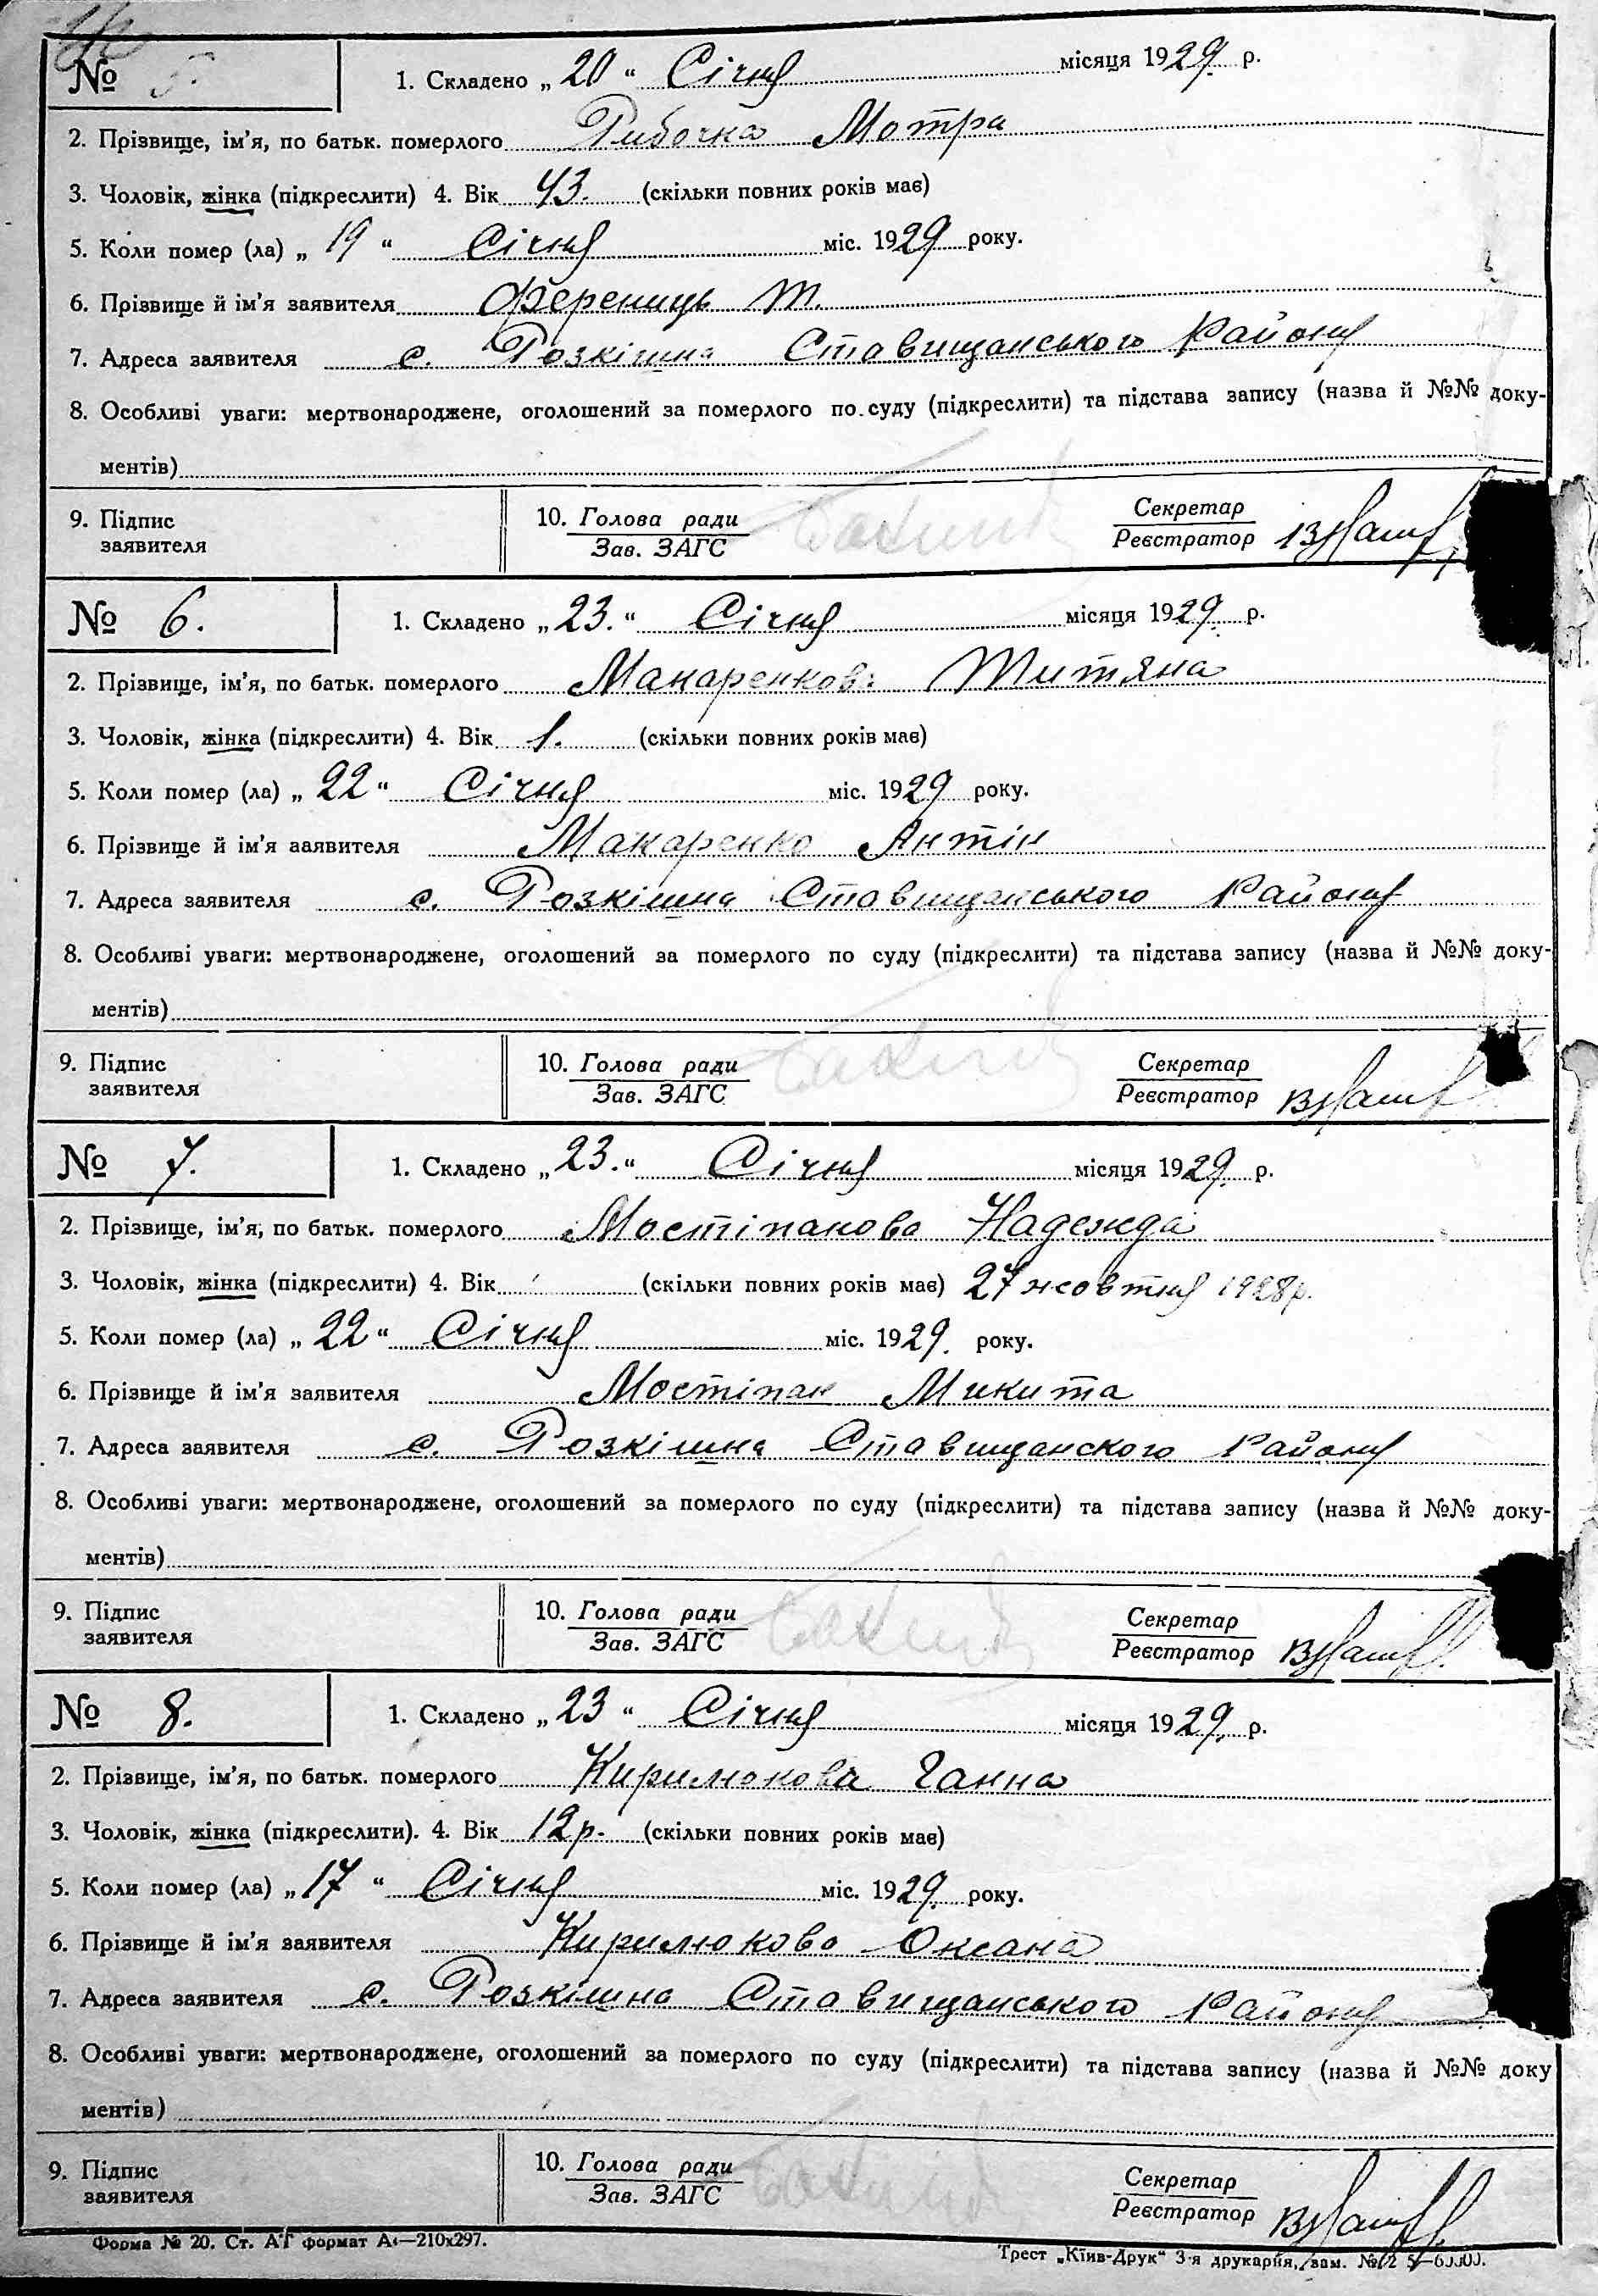 № 5.
1. Складено „ 20 “ Січня місяця 1929. р.
2. Прізвище, ім’я, по батьк. померлого Рибочка Мотра
3. Чоловік, жінка (підкреслити) 4. Вік 43. (скільки повних років має)
5. Коли помер (ла) „ 19 “ Січня міс. 1929 року.
6. Прізвище й ім’я заявителя Ферениць Т.
7. Адреса заявителя с. Розкішна Ставищанського Району
8. Особливі уваги: мертвонароджене, оголошений за померлого по суду (підкреслити) та підстава запису (назва й №№ доку-
ментів)
9. Підпис
заявителя
10. Голова ради
Зав. ЗАГС
Секретар
Реєстратор
№ 6.
1. Складено „ 23. “ Січня місяця 1929. р.
2. Прізвище, ім’я, по батьк. померлого Макаренкова Титяна
3. Чоловік, жінка (підкреслити) 4. Вік 1. (скільки повних років має)
5. Коли помер (ла) „ 22 “ Січня міс. 1929 року.
6. Прізвище й ім’я заявителя Макаренко Антін
7. Адреса заявителя с. Розкішна Ставищанського Району
8. Особливі уваги: мертвонароджене, оголошений за померлого по суду (підкреслити) та підстава запису (назва й №№ доку-
ментів)
9. Підпис
заявителя
10. Голова ради
Зав. ЗАГС
Секретар
Реєстратор
№ 7.
1. Складено „ 23. “ Січня місяця 1929. р.
2. Прізвище, ім’я, по батьк. померлого Мостіпанова Надежда
3. Чоловік, жінка (підкреслити) 4. Вік (скільки повних років має) 27 жовтня 1928р.
5. Коли помер (ла) „ 22 “ Січня міс. 1929. року.
6. Прізвище й ім’я заявителя Мостіпан Микита
7. Адреса заявителя с. Розкішна Ставищанского Району
8. Особливі уваги: мертвонароджене, оголошений за померлого по суду (підкреслити) та підстава запису (назва й №№ доку-
ментів)
9. Підпис
заявителя
10. Голова ради
Зав. ЗАГС
Секретар
Реєстратор
№ 8.
1. Складено „ 23 “ Січня місяця 1929. р.
2. Прізвище, ім’я, по батьк. померлого Кирилюкова Ганна
3. Чоловік, жінка (підкреслити). 4. Вік 12р. (скільки повних років має)
5. Коли помер (ла) „ 17 “ Січня міс. 1929. року.
6. Прізвище й ім’я заявителя Кирилюкова Оксана
7. Адреса заявителя с. Розкішна Ставищанського Району
8. Особливі уваги: мертвонароджене, оголошений за померлого по суду (підкреслити) та підстава запису (назва й №№ доку
ментів)
9. Підпис
заявителя
10. Голова ради
Зав. ЗАГС
Секретар
Реєстратор
Форма № 20. Ст. АГ формат А4—210х297.
Трест „Київ-Друк“ 3-я друкарня, зам. №